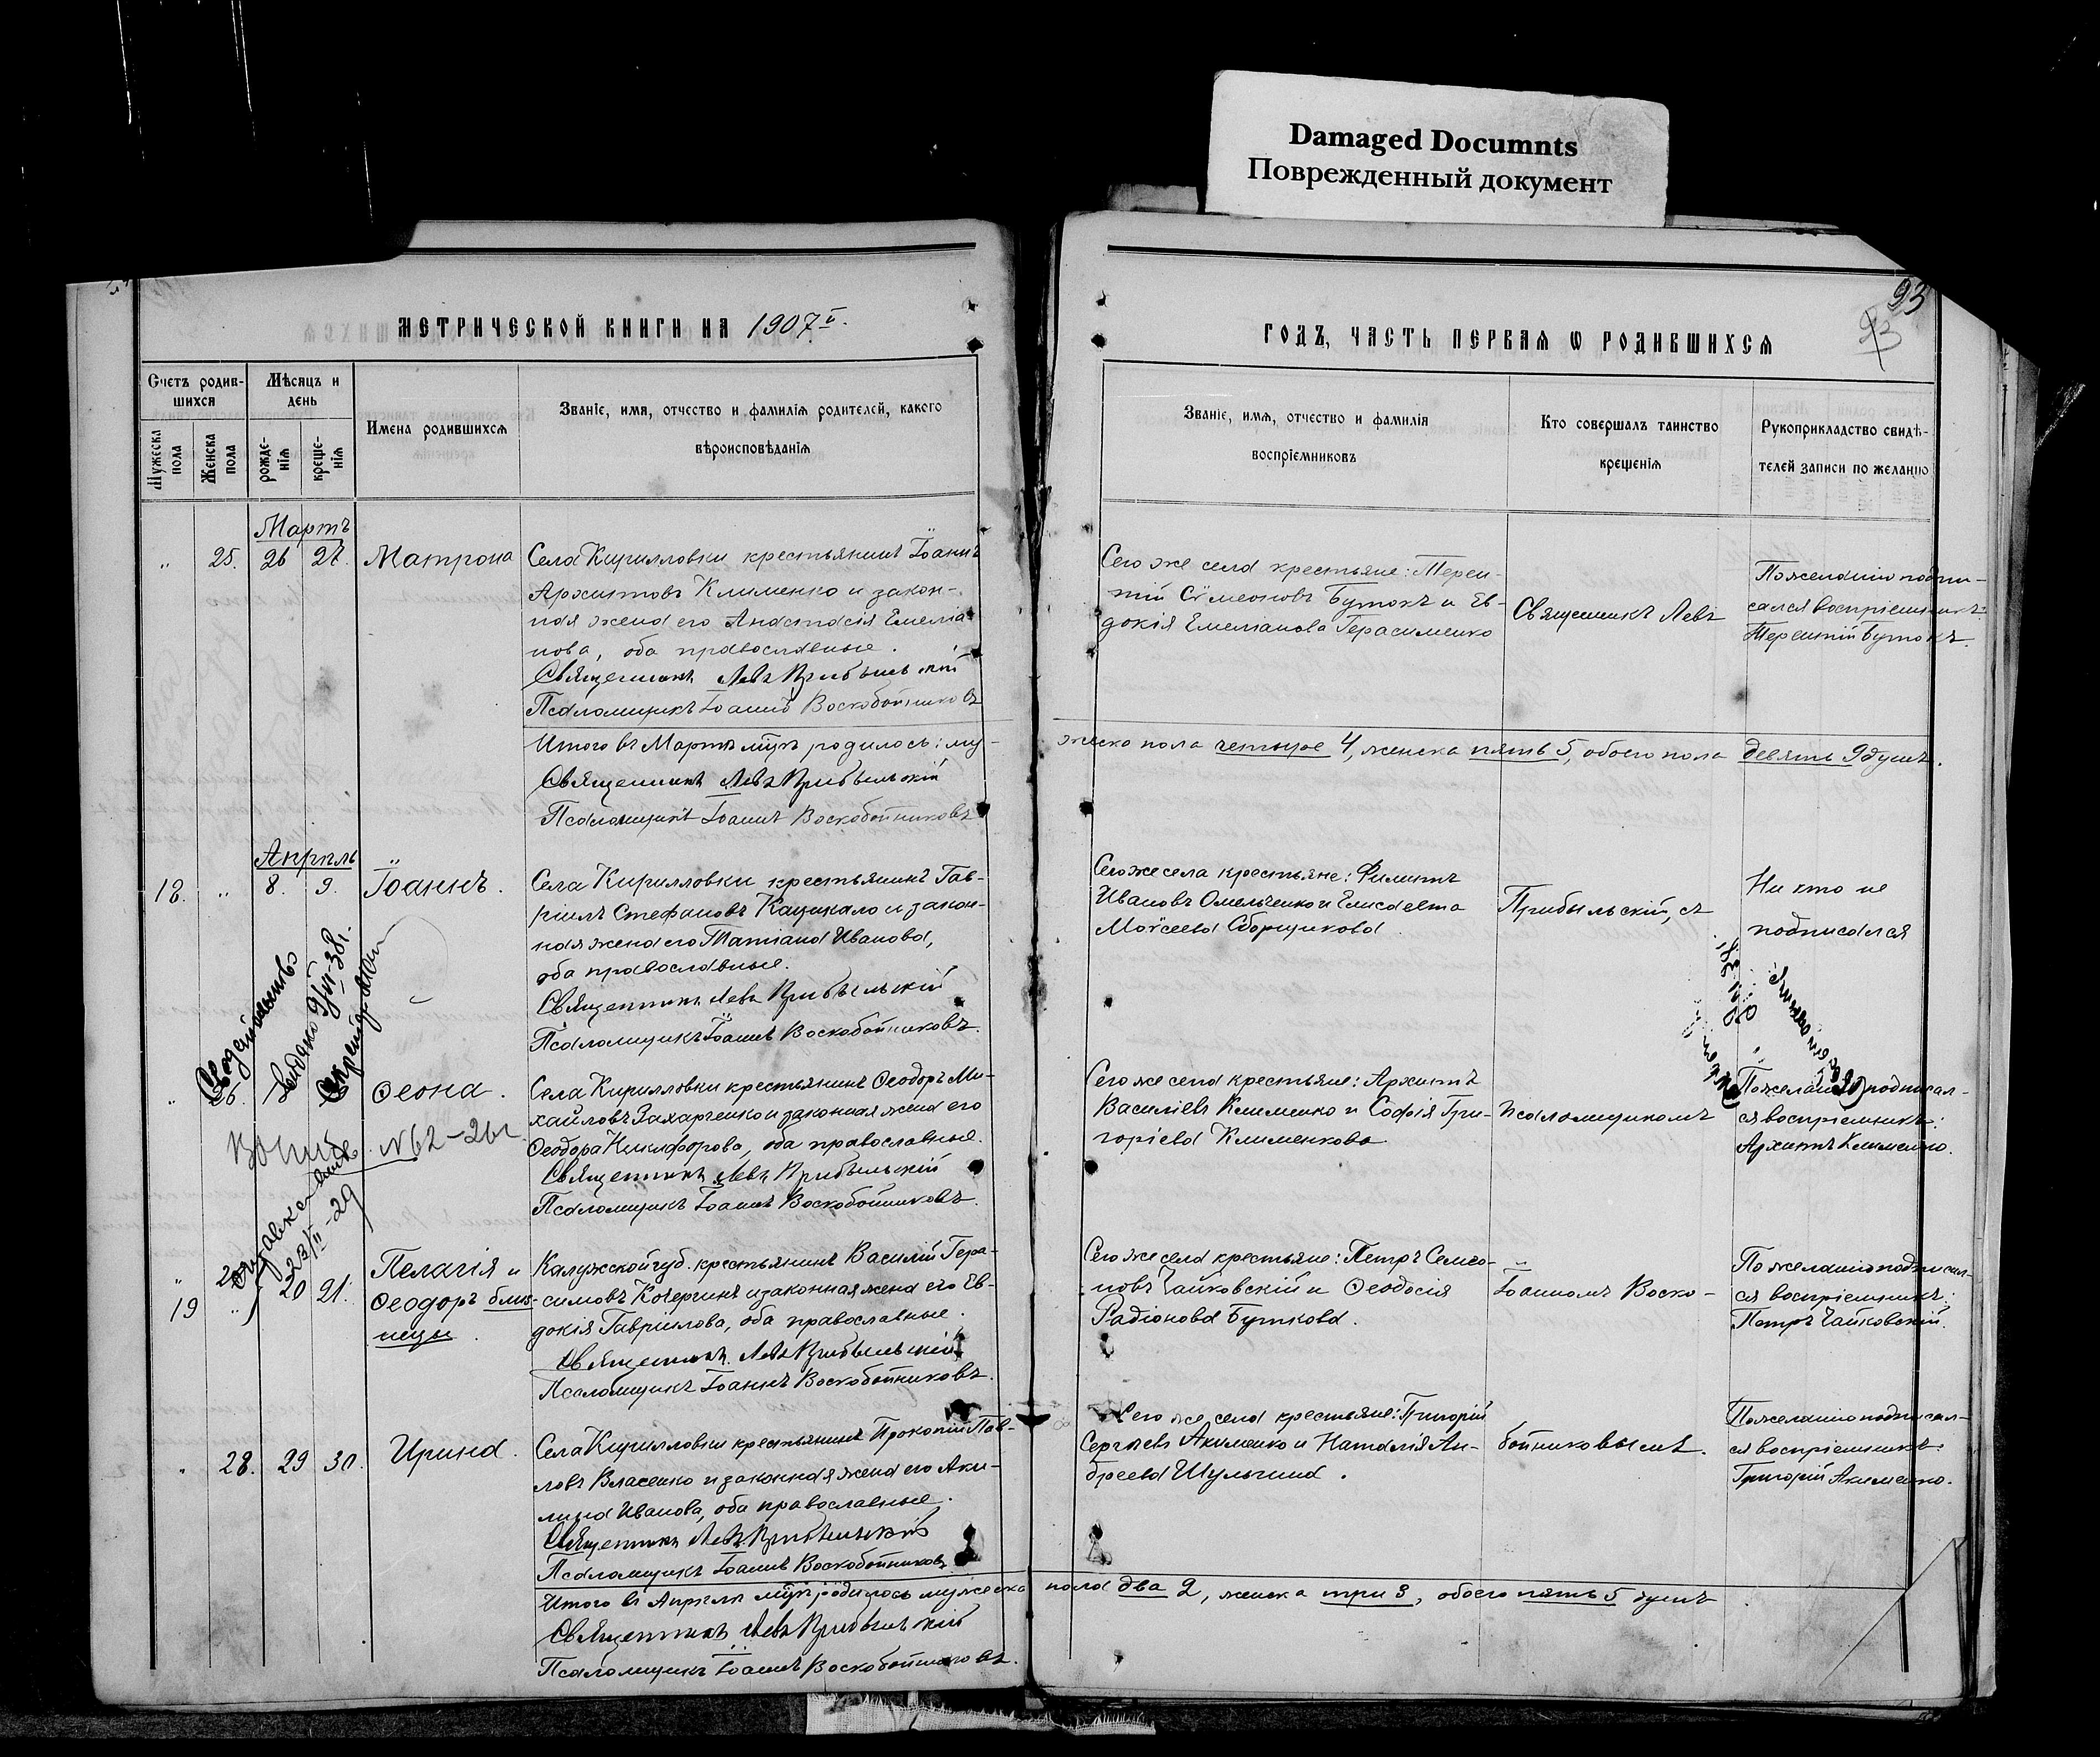 Damaged Documnts
Поврежденный документ
93
МЕТРИЧЕСКОЙ КНИГИ НА 1907й.
ГОДЪ, ЧАСТЬ ПЕРВАЯ Ѡ РОДИВШИХСЯ
Счетъ родив-
шихся
Мужеска пола
Женска пола
Мѣсяцъ и
день
рожде-
нія
креще-
нія
Имена родившихся
Званіе, имя, отчество и фамилія родителей, какого
вѣроисповѣданія
Званіе, имя, отчество и фамилія
воспріемниковъ
Кто совершалъ таинство
крещенія
Рукоприкладство свидѣ-
телей записи по желанію
Мартъ
„ 25. 26 27. Матрона
Села Кирилловки крестьянинъ Іоаннъ
Архиповъ Клименко и закон-
ная жена его Анастасія Емелiа-
нова, оба православные.
Священникъ Левъ Прибыльскій
Псаломщикъ Іоаннъ Воскобойниковъ
Сего же села крестьяне: Терен-
тій Сѵмеоновъ Бутокъ и Ев-
докія Емеліанова Герасименко
Священникъ Левъ
По желанію подпи-
сался воспріемникъ:
Терентій Бутокъ.
Итого въ Мартѣ мѣсяцѣ родилось: му-
жеско пола четыре 4, женска пять 5, обоего пола девять 9 душъ.
Священникъ Левъ Прибыльскій
Псаломщикъ Іоаннъ Воскобойниковъ
Апрѣль
18. „ 8. 9. Іоаннъ.
Села Кирилловки крестьянинъ Гав-
ріилъ Стефановъ Кацикало и закон-
ная жена его Татіана Иванова,
оба православные.
Священникъ Левъ Прибыльскій
Псаломщикъ Іоаннъ Воскобойниковъ.
Сего же села крестьяне: Филиппъ
Ивановъ Омельченко и Елисавета
Моѵсеева Сборщикова.
Прибыльскій, съ
Ни кто не
подписался
„ 26. Ѳеона.
№62-26г.
Села Кирилловки крестьянинъ Ѳеодоръ Ми-
хайловъ Захарченко и законная жена его
Ѳеодора Никифорова, оба православные.
Священникъ Левъ Прибыльскій
Псаломщикъ Іоаннъ Воскобойниковъ.
Сего же села крестьяне: Архиппъ
Василіевъ Клименко и Софія Гри-
горіева Клименкова.
Псаломщикомъ
По желанію подписал-
ся воспріемникъ:
Архиппъ Клименко.
„ 20 21. Пелагія и
19 „ Ѳеодоръ близ-
нецы.
Калужской губ. крестьянинъ Василій Гера-
симовъ Кочергинъ и законная жена его Ев-
докія Гавріилова, оба православные.
Священникъ Левъ Прибыльскій
Псаломщикъ Іоаннъ Воскобойниковъ.
Сего же села крестьяне: Петръ Семео-
новъ Чайковскій и Ѳеодосія
Радіонова Буткова.
Іоанномъ Воско-
По желанію подписал-
ся воспріемникъ:
Петръ Чайковскій.
„ 28. 29 30. Ирина.
Села Кирилловки крестьянинъ Прокопій Пав-
ловъ Власенко и законная жена его Аки-
лина Иванова, оба православные.
Священникъ Левъ Прибыльскій
Псаломщикъ Іоаннъ Воскобойниковъ
Сего же села крестьяне: Григорій
Сергѣевъ Акименко и Наталія Ан-
дреева Шульгина.
бойниковымъ.
По желанію подписал-
ся воспріемникъ:
Григорій Акименко.
Итого въ Апрѣлѣ мѣсяцѣ родилось мужеска пола два 2, женска три 3, обоего пять 5 душъ.
Священникъ Левъ Прибыльскій
Псаломщикъ Іоаннъ Воскобойниковъ.